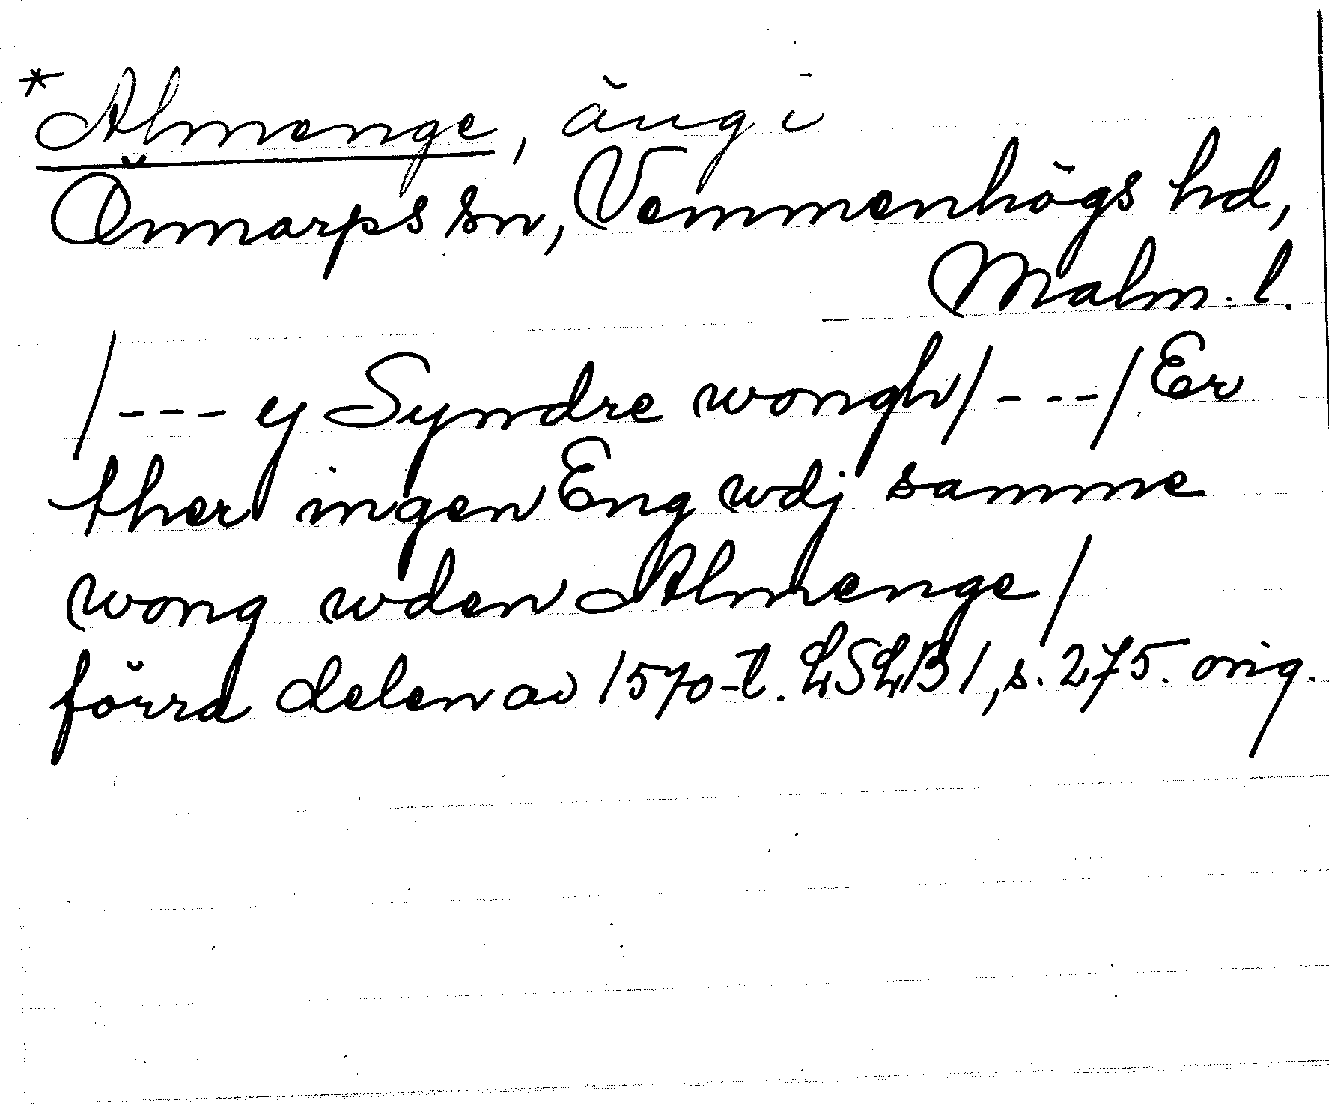 *Almenge, äng i
Önnarps sn, Vemmenhögs hd,
Malm. l.
/--- y Syndre wongh/---/Er
ther ingen Eng wdj samme
wong wden Almenge/
förra delen av 1570-t. LSLB 1, s. 275. orig.